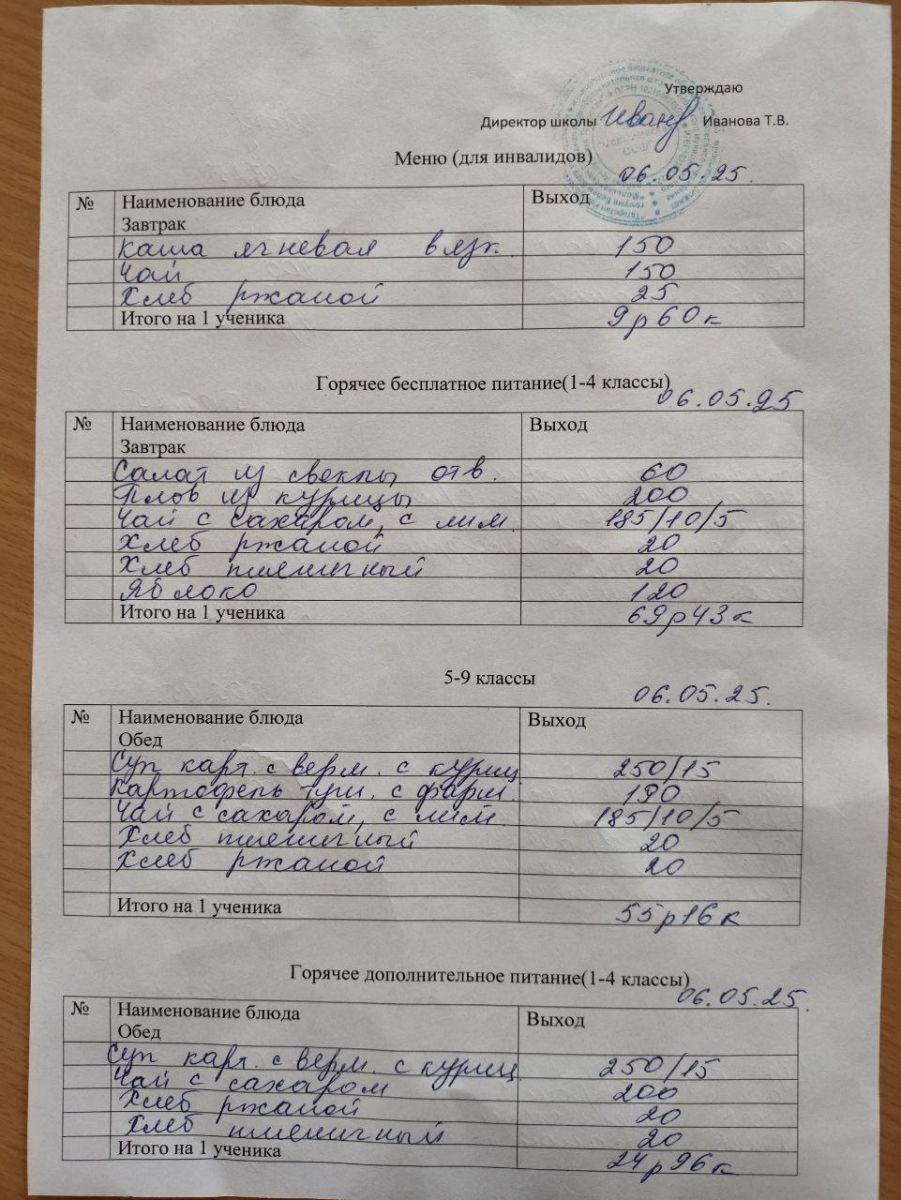 Утверждаю
Директор школы Иванова Т.В.
Меню (для инвалидов)
06.05.25.
№ Наименование блюда Выход
Завтрак
Каша ячневая вязк. 150
Чай 150
Хлеб ржаной 25
Итого на 1 ученика 9р60к
Горячее бесплатное питание(1-4 классы)
06.05.25
№ Наименование блюда Выход
Завтрак
Салат из свеклы отв. 60
Плов из курицы 200
Чай с сахаром, с лим. 185/10/5
Хлеб ржаной 20
Хлеб пшеничный 20
Яблоко 120
Итого на 1 ученика 69р43к
5-9 классы
06.05.25.
№ Наименование блюда Выход
Обед
Суп карт. с верм. с куриц 250/15
Картофель туш. с фарш. 190
Чай с сахаром, с лим. 185/10/5
Хлеб пшеничный 20
Хлеб ржаной 20
Итого на 1 ученика 55р16к
Горячее дополнительное питание(1-4 классы)
06.05.25.
№ Наименование блюда Выход
Обед
Суп карт. с верм. с куриц. 250/15
Чай с сахаром 200
Хлеб ржаной 20
Хлеб пшеничный 20
Итого на 1 ученика 24р96к